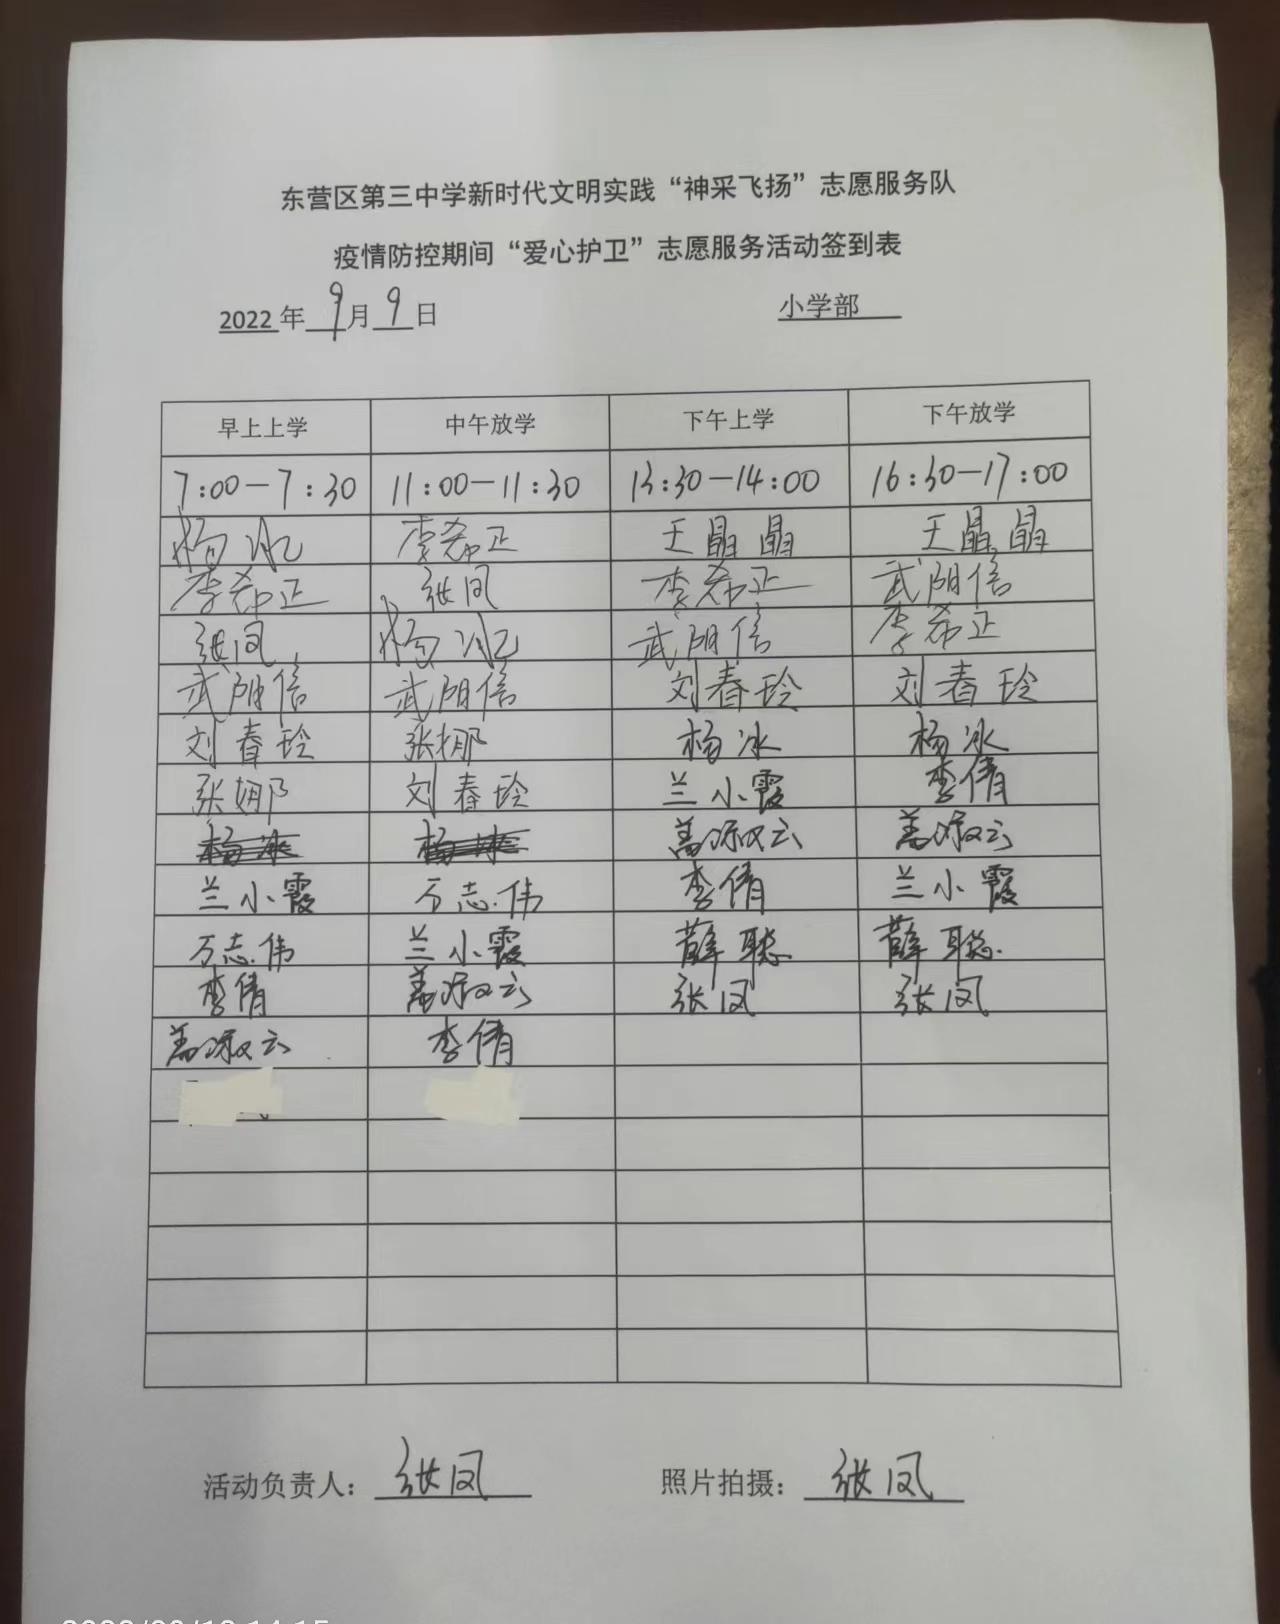 东营区第三中学新时代文明实践“神采飞扬”志愿服务队
疫情防控期间“爱心护卫”志愿服务活动签到表
2022年9月9日 小学部
早上上学 中午放学 下午上学 下午放学
7:00-7:30 11:00-11:30 13:30-14:00 16:30-17:00
杨冰 李希正 王晶晶 王晶晶
李希正 张凤 李希正 武阴信
张凤 杨冰 武阴信 李希正
武阴信 武阴信 刘春玲 刘春玲
刘春玲 张娜 杨冰 杨冰
张娜 刘春玲 兰小霞 李倩
杨冰 杨冰 盖淑云 盖淑云
兰小霞 万志伟 李倩 兰小霞
万志伟 兰小霞 薛聪 薛聪
李倩 盖淑云 张凤 张凤
盖淑云 李倩
活动负责人：张凤 照片拍摄：张凤